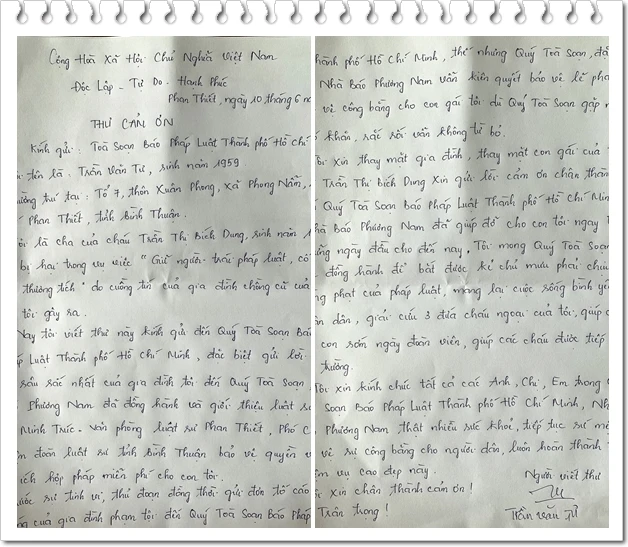 Cộng Hoà Xã Hội Chủ Nghĩa Việt Nam
Độc Lập - Tự Do - Hạnh Phúc
Phan Thiết, ngày 10 tháng 6 nă
THƯ CẢM ƠN
Kính gửi: Toà Soạn Báo Pháp Luật Thành phố Hồ Chí
tên là: Trần Văn Tư, sinh năm 1959
thường trú tại: Tổ 7, thôn Xuân Phong, xã Phong Nẫm,
Phan Thiết, tỉnh Bình Thuận.
là cha của cháu Trần Thị Bích Dung, sinh năm 1
bị hại trong vụ việc "Giữ người trái pháp luật, cố
thương tích" do cuồng tín của gia đình chồng cũ của
tôi gây ra.
Nay tôi viết thư này kính gửi đến Quý Toà Soạn Bá
Luật Thành phố Hồ Chí Minh, đặc biệt gửi lời
sâu sắc nhất của gia đình tôi đến Quý Toà Soạn
Phương Nam đã đồng hành và giới thiệu luật s
Minh Trúc - Văn phòng luật sư Phan Thiết, Phó C
đoàn luật sư tỉnh Bình Thuận bảo vệ quyền v
ích hợp pháp miễn phí cho con tôi.
sự tinh vi, thủ đoạn đồng thời gửi đơn tố cáo
của gia đình phạm tội đến Quý Toà Soạn Báo Pháp
hành phố Hồ Chí Minh, thế nhưng Quý Toà Soạn, đặ
Nhà Báo Phương Nam vẫn kiên quyết bảo vệ lẽ phả
về công bằng cho con gái tôi dù Quý Toà Soạn gặp n
khăn, rắc rối vẫn không từ bỏ.
xin thay mặt gia đình, thay mặt con gái của
Trần Thị Bích Dung xin gửi lời cảm ơn chân thàn
Quý Toà Soạn Báo Pháp Luật Thành phố Hồ Chí Minh
Báo Phương Nam đã giúp đỡ cho con tôi ngay t
những ngày đầu cho đến nay. Tôi mong Quý Toà Soạn
đồng hành để bắt được kẻ chủ mưu phải chịu
phạt của pháp luật, mang lại cuộc sống bình yên
dân, giải cứu 3 đứa cháu ngoại của tôi, giúp c
con sớm ngày đoàn viên, giúp các cháu được tiếp
trường.
Tôi xin kính chúc tất cả các Anh, Chị, Em trong
Soạn Báo Pháp Luật Thành phố Hồ Chí Minh, Nh
Phương Nam thật nhiều sức khoẻ, tiếp tục sứ mệ
vệ sự công bằng cho người dân, luôn hoàn thành
vụ cao đẹp này.
xin chân thành cảm ơn!
Trân trọng!
Người viết thư
Trần Văn Tư